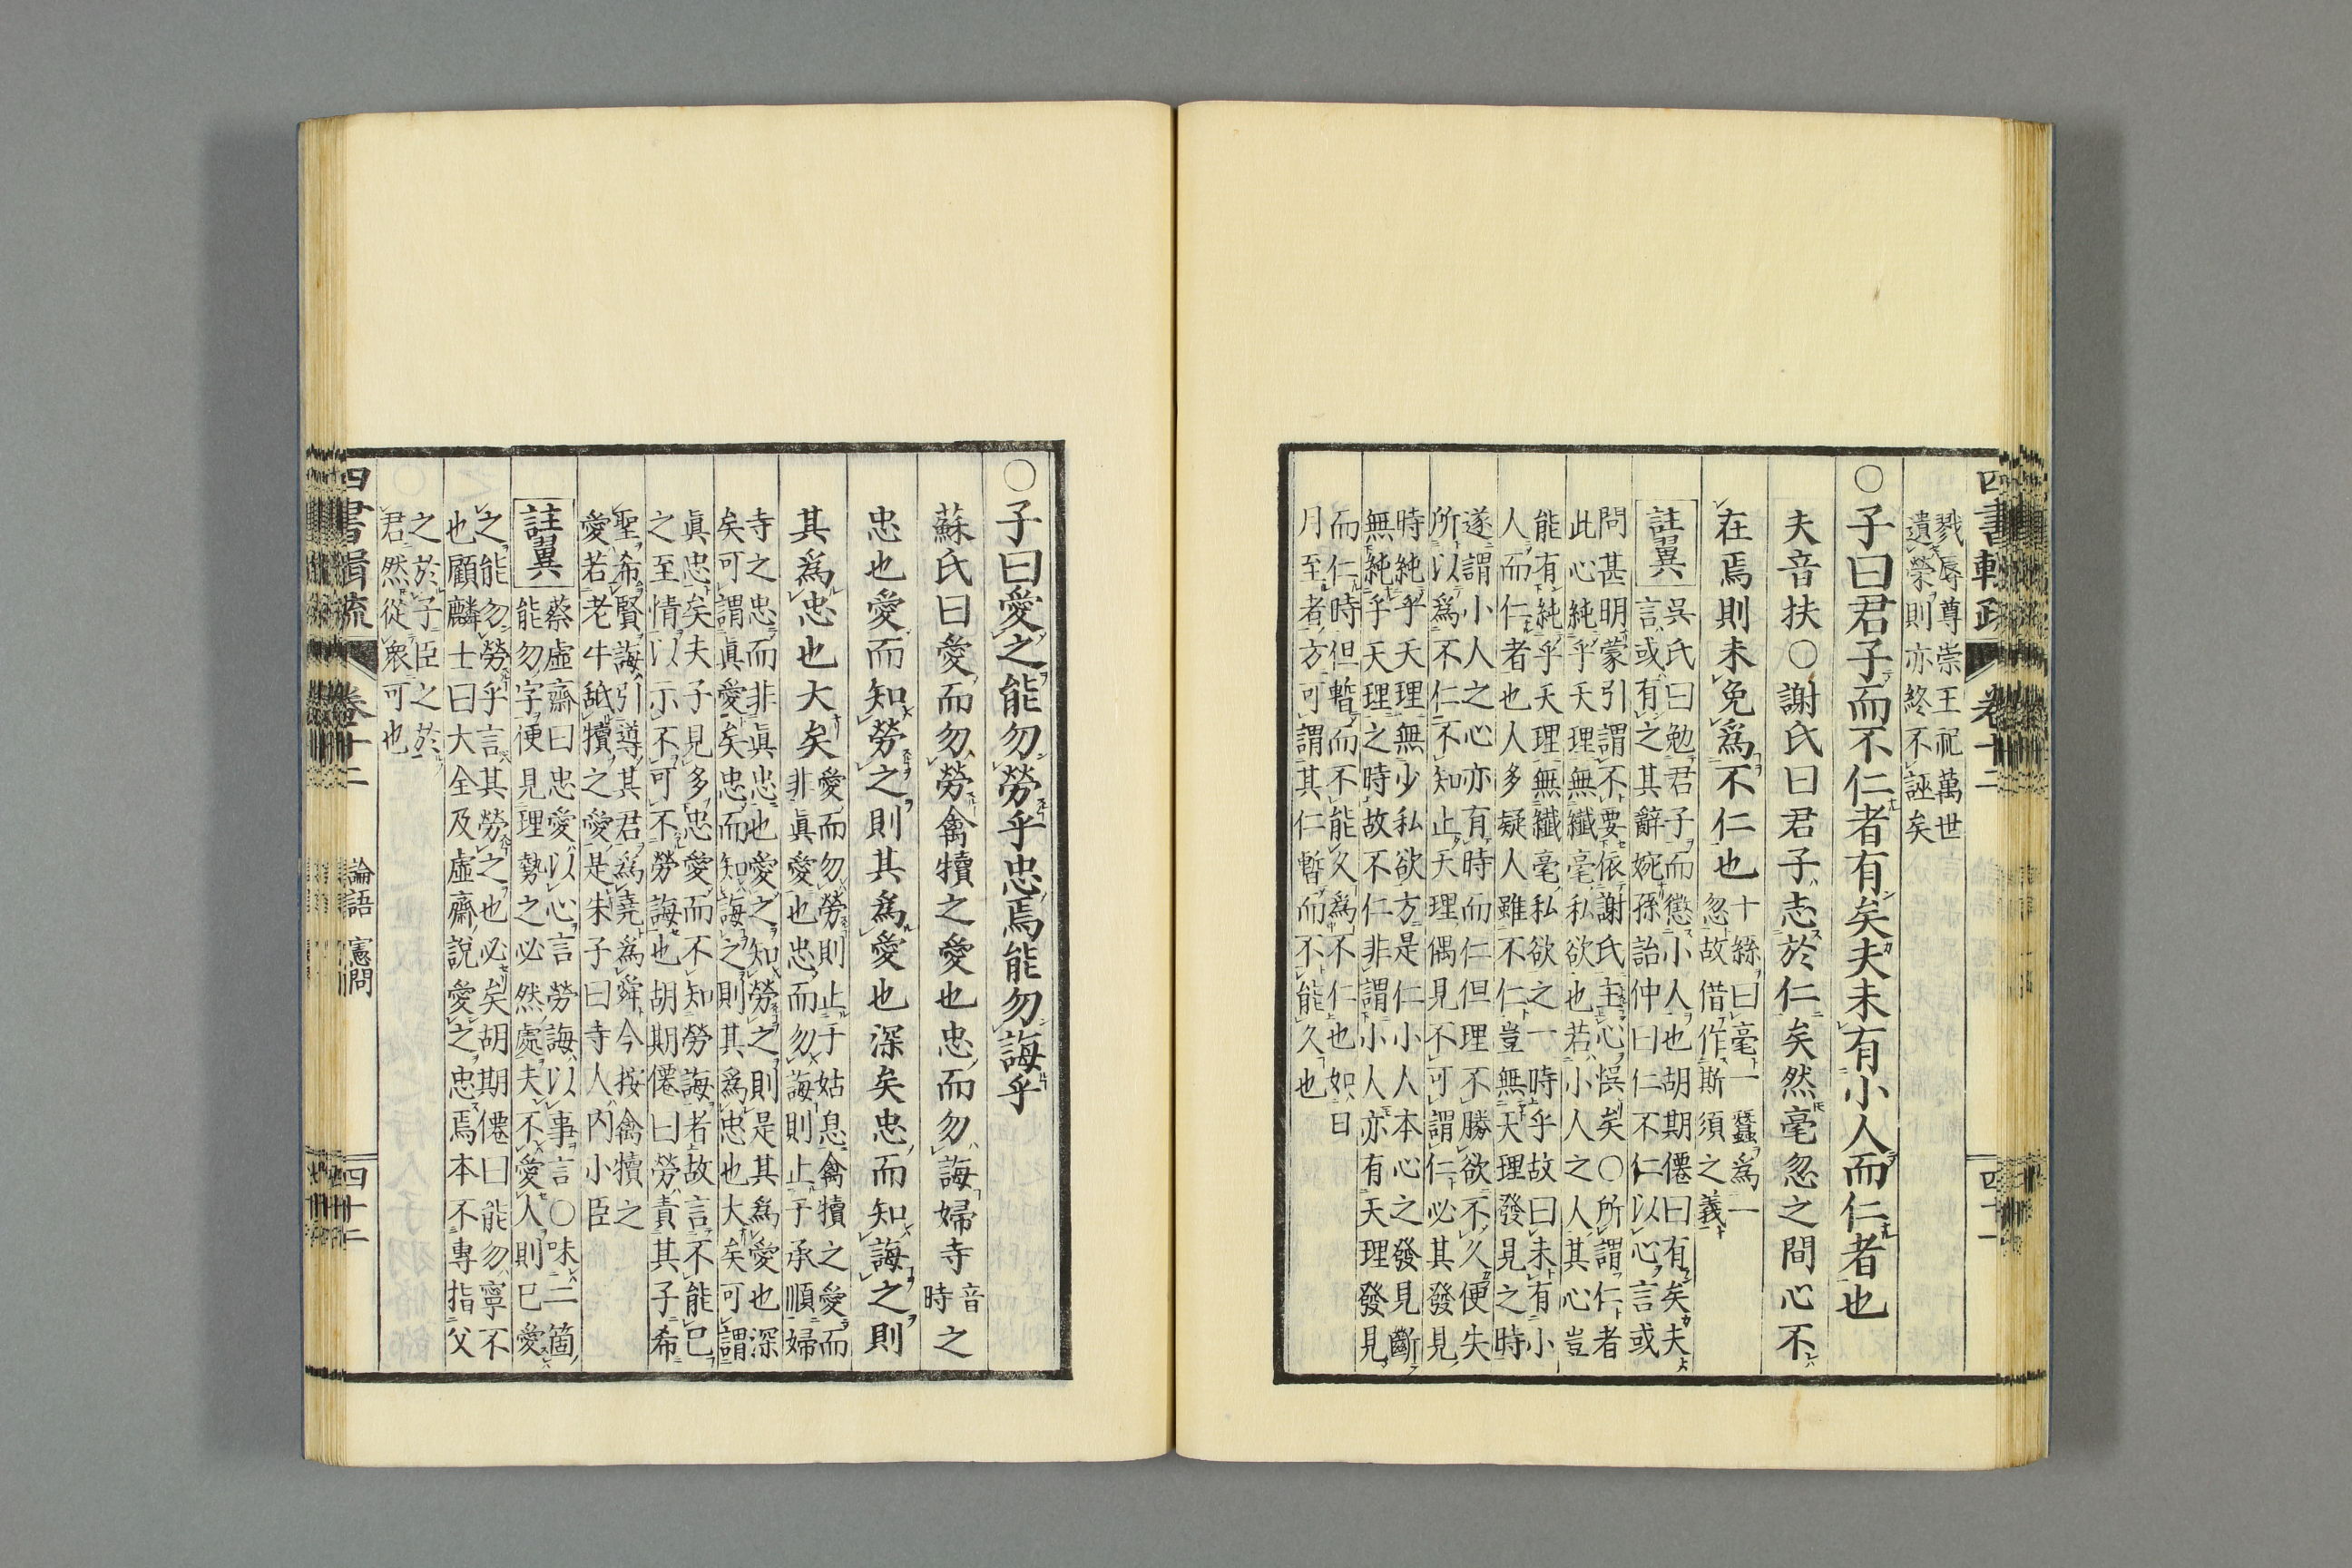 四書輯疏 卷十二 四十一
戮辱尊崇王祀萬世
遺榮則亦終不誣矣
○子曰君子而不仁者有矣夫未有小人而仁者也
夫音扶○謝氏曰君子志於仁矣然毫忽之間心不
在焉則未免爲不仁也
十絲曰毫一蠶爲一
忽故借作斯須之義
註翼
吳氏曰勉君子而懲小人也胡期僊曰有矣夫
言或有之其辭婉孫詒仲曰仁不仁以心言或
問甚明蒙引謂不要依謝氏主心悞矣○所謂仁者
此心純乎天理無纖毫私欲也若小人之人其心豈
能有純乎天理無纖毫私欲之一時乎故曰未有小
人而仁者也人多疑人雖不仁豈無天理發見之時
遂謂小人之心亦有時而仁但理不勝欲不久便失
所以爲不仁不知止天理偶見不可謂仁必其發見
時純乎天理無少私欲方是仁小人本心之發見斷
無純乎天理之時故不仁非謂小人亦有天理發見
而仁時但暫而不能久爲不仁也如日
月至者方可謂其仁暫而不能久也
○子曰愛之能勿勞乎忠焉能勿誨乎
蘇氏曰愛而勿勞禽犢之愛也忠而勿誨婦寺
音
時
之
忠也愛而知勞之則其爲愛也深矣忠而知誨之則
其爲忠也大矣
愛而勿勞則止于姑息禽犢之愛而
非眞愛也忠而勿誨則止于承順婦
寺之忠而非眞忠也愛之知勞之則是其爲愛也深
矣可謂眞愛矣忠而知誨之則其爲忠也大矣可謂
眞忠矣夫子見多忠愛而不知勞誨者故言不能已
之至情以示不可不勞誨也胡期僊曰勞責其子希
聖希賢誨引導其君爲堯爲舜今按禽犢之
愛若老牛舐犢之愛是朱子曰寺人內小臣
註翼
蔡虛齋曰忠愛以心言勞誨以事言○味二箇
能勿字便見理勢之必然處夫不愛人則已愛
之能勿勞乎言其勞之也必矣胡期僊曰能勿寧不
也顧麟士曰大全及虛齋說愛之忠焉本不專指父
之於子臣之於
君然從衆可也
四書輯疏 卷十二 論語 憲問 四十二